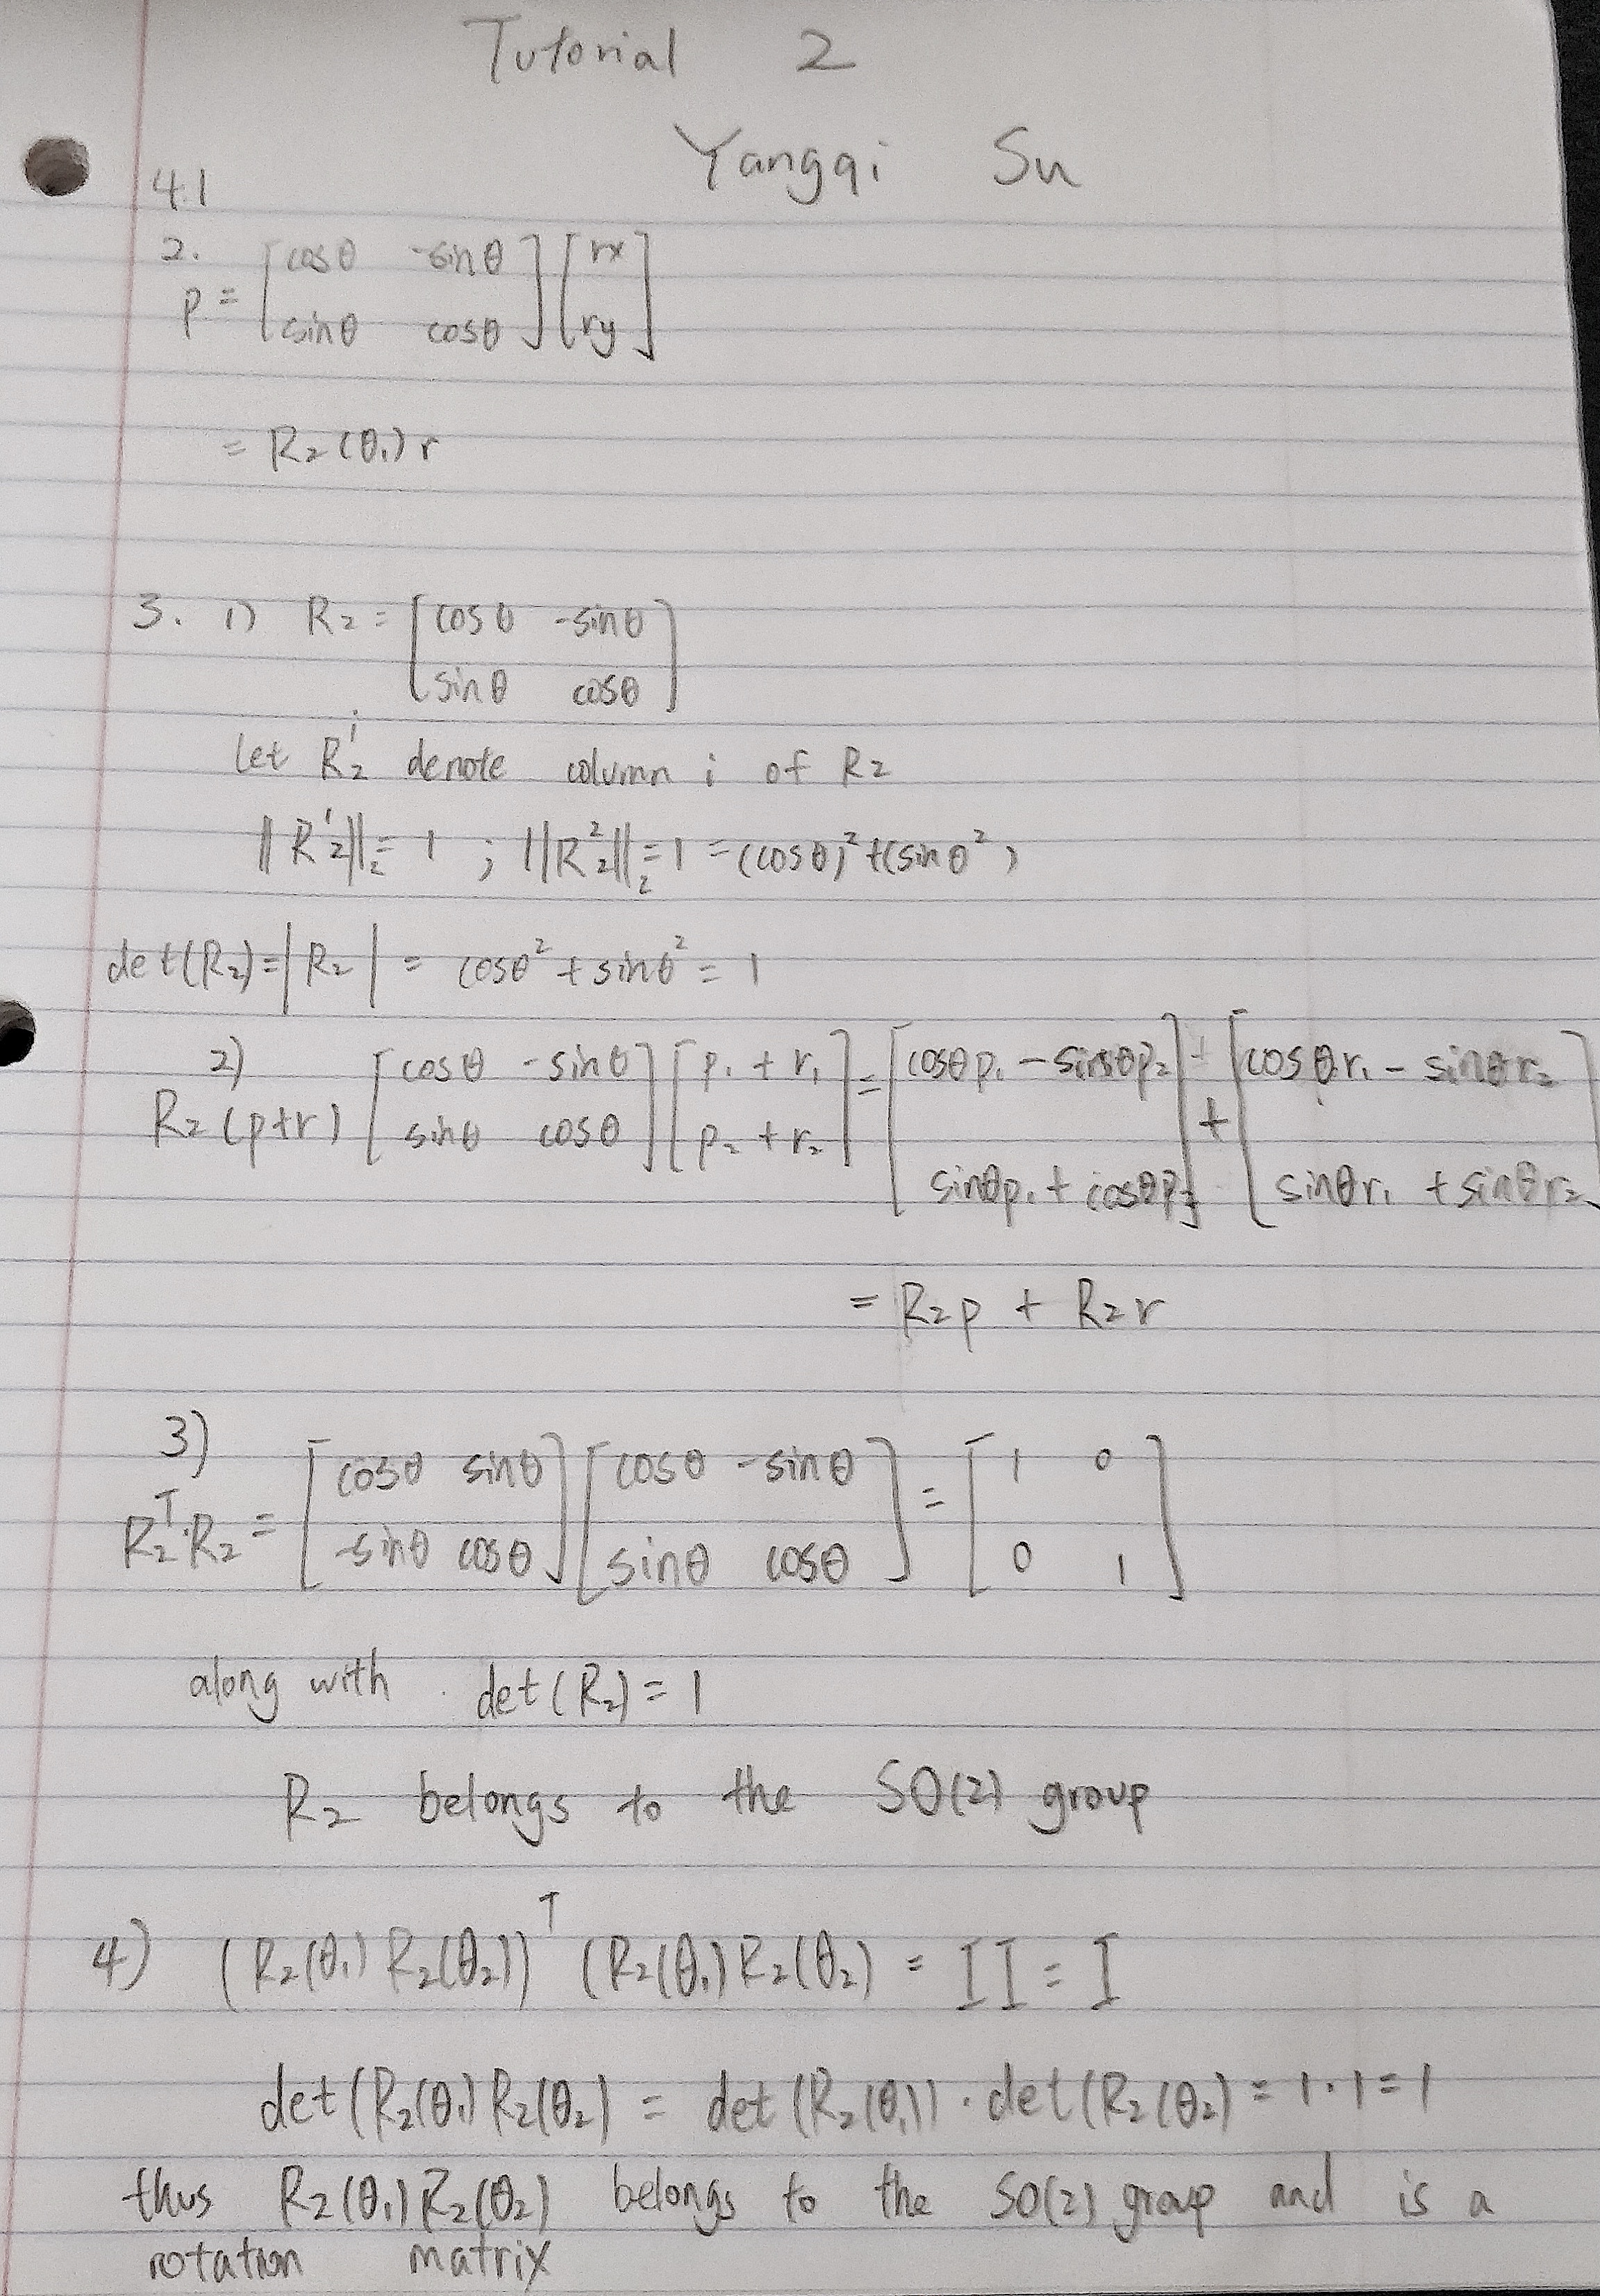 Tutorial 2
Yangqi Su
4.1
2.
p = [cosθ -sinθ; sinθ cosθ] [rx; ry]
= R₂(θ₁) r
3. 1) R₂ = [cosθ -sinθ; sinθ cosθ]
Let R₂ⁱ denote column i of R₂
||R₂¹||₂ = 1 ; ||R₂²||₂ = 1 = (cosθ)² + (sinθ²)
det(R₂) = |R₂| = cosθ² + sinθ² = 1
2)
R₂(p+r) [cosθ -sinθ; sinθ cosθ] [p₁ + r₁; p₂ + r₂] = [cosθp₁ - sinθp₂; sinθp₁ + cosθp₂] + [cosθr₁ - sinθr₂; sinθr₁ + sinθr₂]
= R₂p + R₂r
3)
R₂ᵀ·R₂ = [cosθ sinθ; -sinθ cosθ] [cosθ -sinθ; sinθ cosθ] = [1 0; 0 1]
along with det(R₂) = 1
R₂ belongs to the SO(2) group
4) (R₂(θ₁) R₂(θ₂))ᵀ (R₂(θ₁) R₂(θ₂) = I I = I
det(R₂(θ₁) R₂(θ₂) = det(R₂(θ₁)) · det(R₂(θ₂) = 1·1 = 1
thus R₂(θ₁) R₂(θ₂) belongs to the SO(2) group and is a
rotation matrix